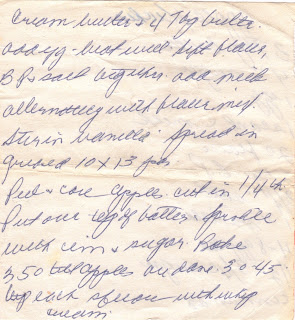 Cream butter & 4 Tbg butter.
add egg - beat well. sift flour,
B P & salt together. add milk
alternating with flour mix.
Stir in Vanilla. Spread in
greased 10 x 13 pan
Peel & core apples. cut in 1/4 th
Put over top of batter. Sprinkle
with cin & sugar. Bake
350 till apples are done. 30-45.
Top each square with whip
cream